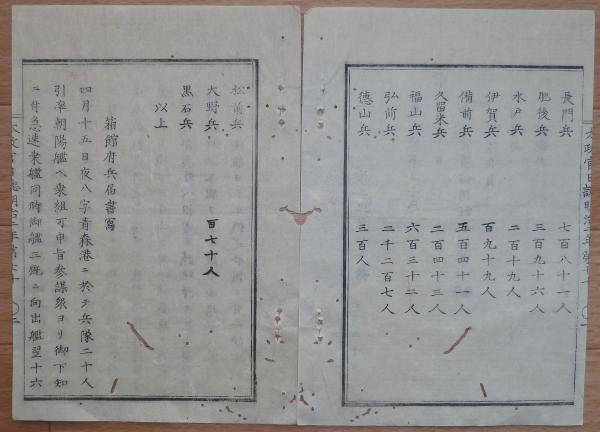 長門兵 七百八十一人
肥後兵 三百九十六人
水戸兵 二百十九人
伊賀兵 百九十九人
備前兵 五百四十一人
久留米兵 二百四十三人
福山兵 六百三十二人
弘前兵 二千二百七人
德山兵 三百人
松前兵
大野兵 百七十人
黒石兵
以上
箱館府兵届書寫
四月十五日夜八字青森港ニ於テ兵隊二十人
引率朝陽艦ヘ乗組可申旨参謀衆ヨリ御下知
ニ付急速乗艦同時御艦三艘ニ向出艦翌十六